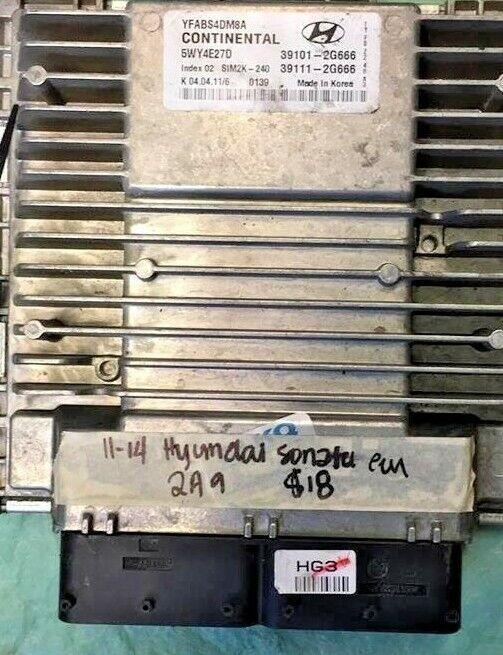 YFABS4DM8A
CONTINENTAL
5WY4E27D 39101-2G666
Index 02 SIM2K-240 39111-2G666
K 04.04.11/6 0139 Made in Korea
11-14 Hyundai Sonata ecm
2A9 $18
HG3